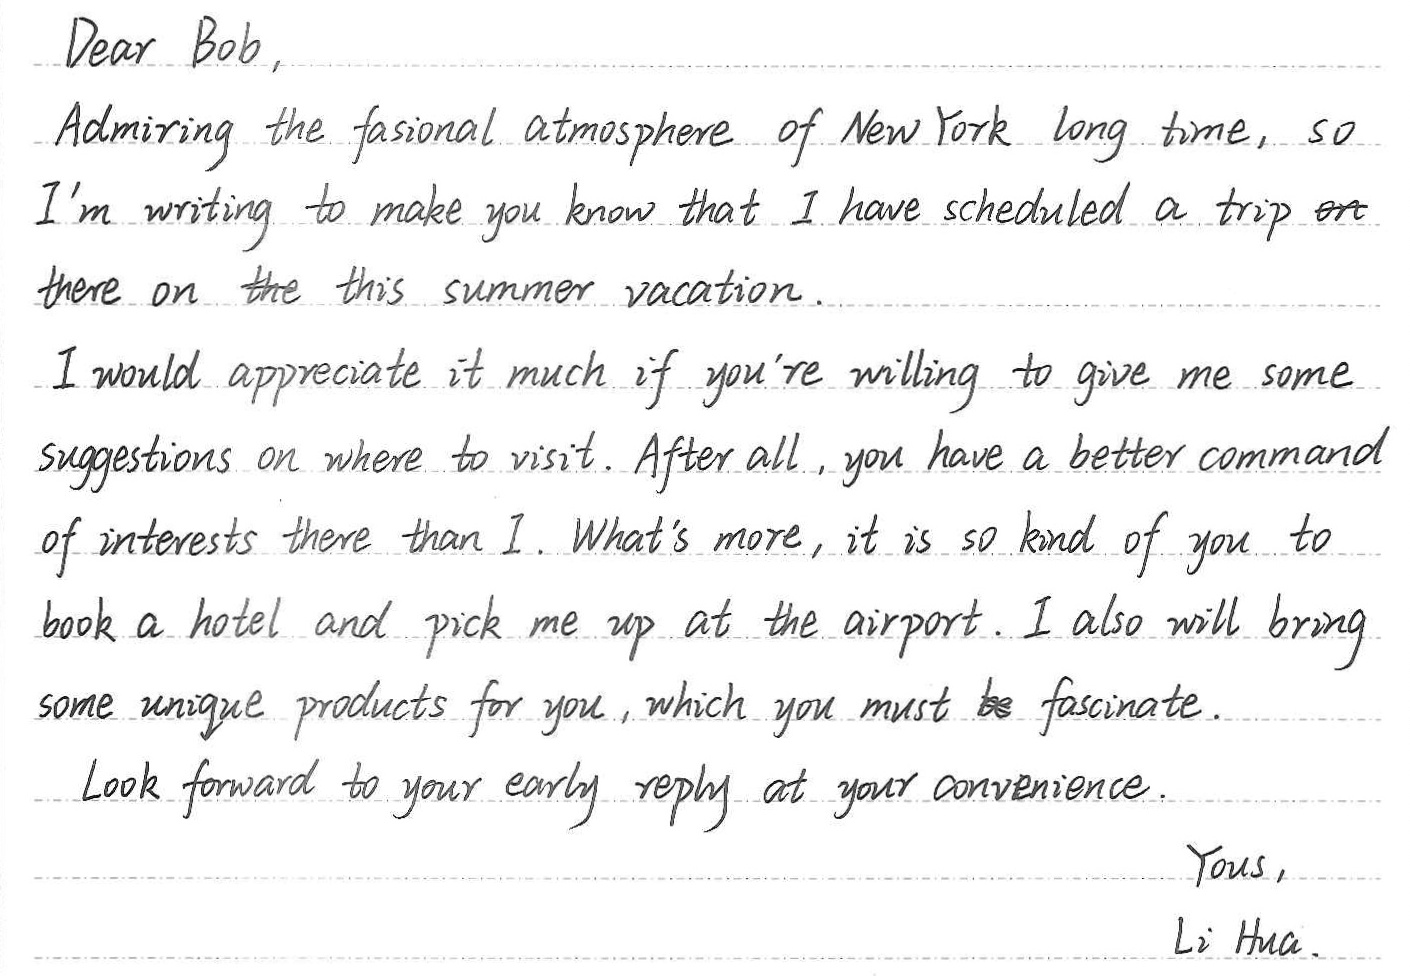 Dear Bob,
Admiring the fasional atmosphere of New York long time, so
I'm writing to make you know that I have scheduled a trip on
there on the this summer vacation.
I would appreciate it much if you're willing to give me some
suggestions on where to visit. After all, you have a better command
of interests there than I. What's more, it is so kind of you to
book a hotel and pick me up at the airport. I also will bring
some unique products for you, which you must be fascinate.
Look forward to your early reply at your convenience.
Yous,
Li Hua.